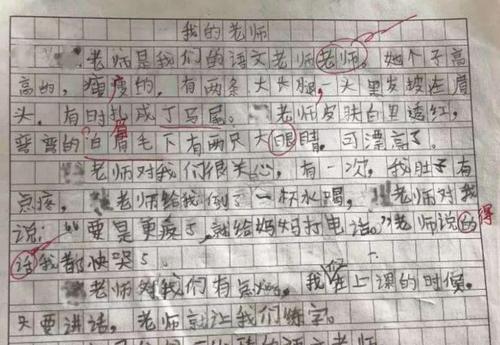 我的老师
老师是我们的语文老师老师，她个子高
高的，瘦瘦的，有两条大长腿，一头黑发披在肩
头，有时扎成了马尾。老师皮肤白里透红，
弯弯的眉毛下有两只大眼睛，可漂亮了。
老师对我们很关心，有一次，我肚子有
点疼，老师给我倒了一杯水喝，老师对我
说：“要是更疼了，就给妈妈打电话。”老师说的得
话我都快哭了。
老师对我们有点，我在上课的时候，
只要讲话，老师就让我们练字。
的语文老师